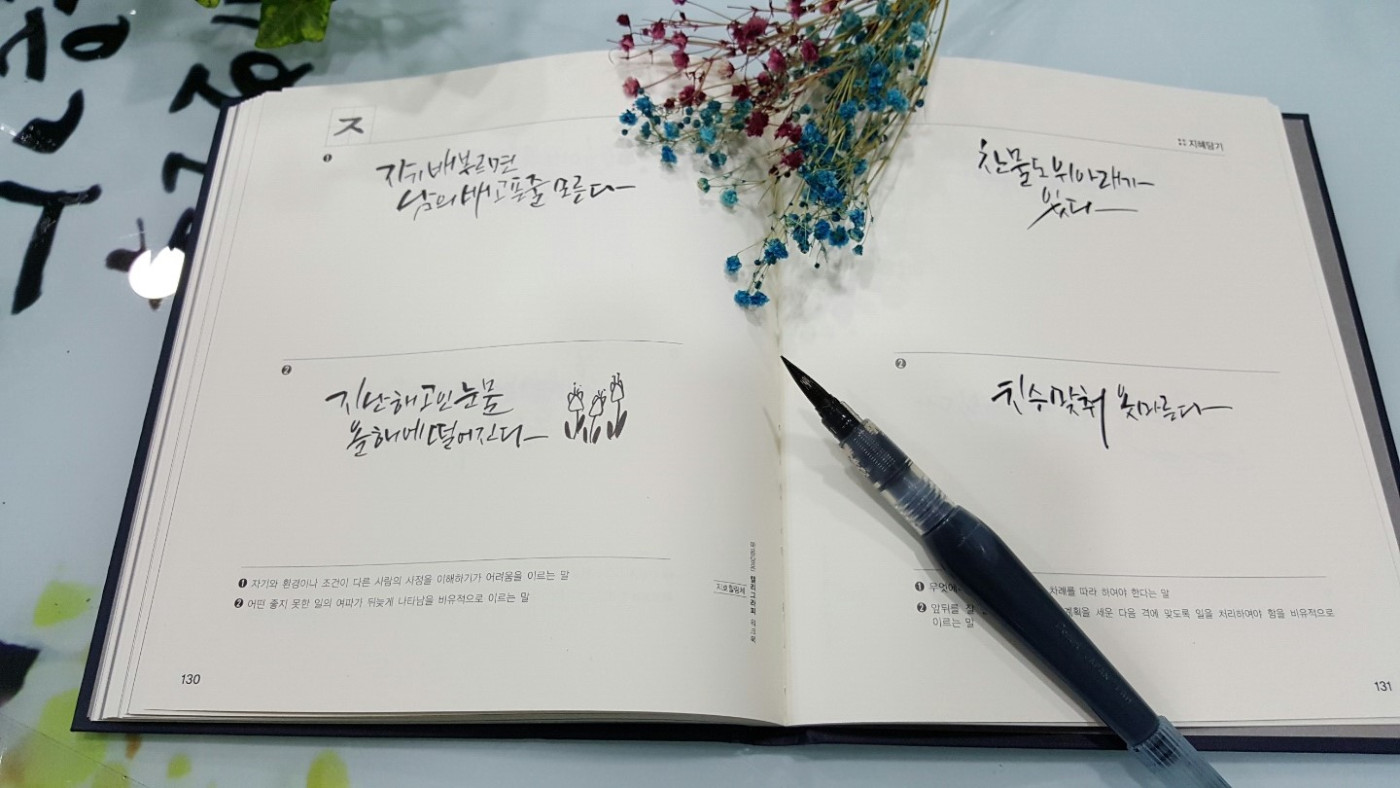 ㅈ
❶
자쉬 배부르면
남의 배고픈줄 모른다
❷
지난해 고인 눈물
올해에 떨어진다
❶ 자기와 환경이나 조건이 다른 사람의 사정을 이해하기가 어려움을 이르는 말
❷ 어떤 좋지 못한 일의 여파가 뒤늦게 나타남을 비유적으로 이르는 말
130
캘리그라피
지혜담기
찬물도 위아래가
있다
❷
치수 맞춰 옷 마른다
❶ 무엇에 차례를 따라 하여야 한다는 말
❷ 앞뒤를 잘 계획을 세운 다음 격에 맞도록 일을 처리하여야 함을 비유적으로
이르는 말
131